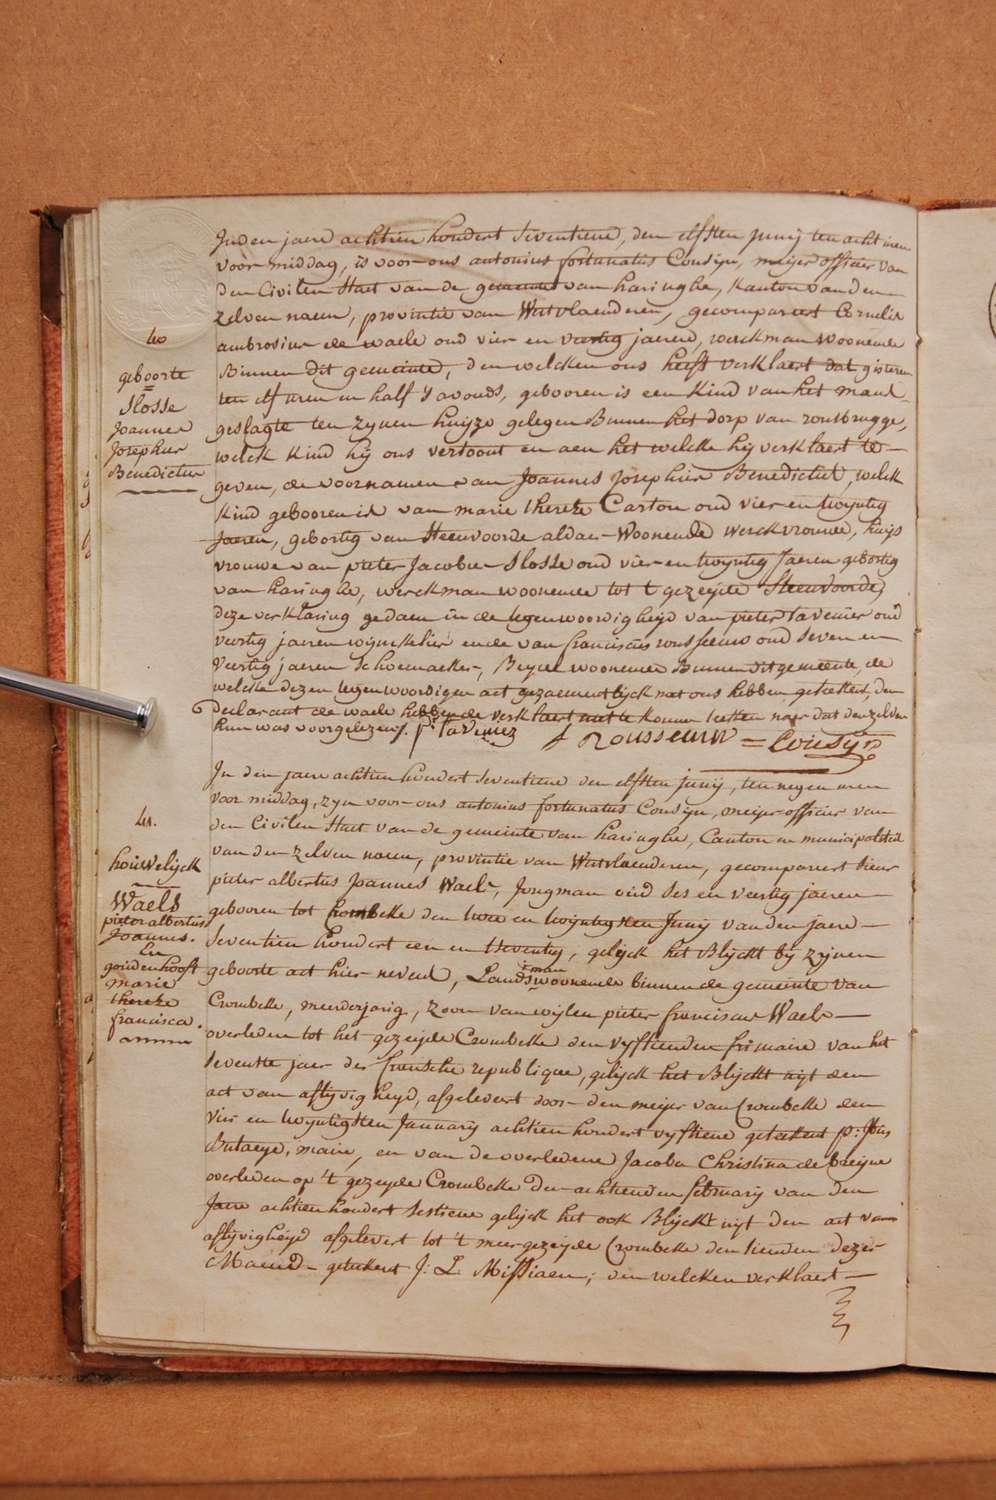 40
geboorte
=
Slosse
Joannes
Josephus
Benedictus
In den jaere achtien hondert seventiene, den elfsten junij ten acht uren
voor middag, is voor ons antonius fortunatus Cousijn, meijer officier van
den Civilen staet van de gemeente van haringhe, kanton van den
zelven naem, provintie van Westvlaenderen, gecompareert Cornelis
ambrosius de waele oud vier en veertig jaeren, werckman woonende
Binnen dit gemeente, den welcken ons heeft verklaert dat gisteren
ten elf uren en half s'avonds, gebooren is een kind van het manl.
geslagte ten zijnen huijze gelegen Binnen het dorp van rousbrugge,
welck kind hij ons vertoont en aen het welcke hij verklaert te
geven, de voornamen van Joannes Josephus Benedictus, welck
kind gebooren is van marie thereze Carton oud vier en twijntig
Jaeren, gebortig van Steenvoorde aldaer Woonende werckvrouwe, huijs
vrouwe van pieter Jacobus Slosse oud vier en twijntig Jaeren gebortig
van haringhe, werckman woonende tot t gezeijde Steenvoorde,
deze verklaring gedaen in de tegenwoordigheijd van pieter tavenier oud
veertig jaeren wijnckelier ende van franciscus rousseeuw oud seven en
veertig jaeren schoenmaeker, Beijde woonende Binnen dit gemeente, de
welcke dezen tegenwoordigen act gezaementlijck met ons hebben geteekent, den
declarant de waele hebbende verklaert niet te konnen teeken naer dat den zelven
hun was voorgelezen ./. p tavenier f Rousseeuw = Cousijn
41.
houwelijck
Waels
pieter albertus
Joannes.
En
goudenhooft
marie
thereze
francisca.
In den jaere achtien hondert seventiene den elfsten junij, ten negen uren
voor middag, zijn voor ons antonius fortunatus Cousijn, meijer officier van
den Civilen Staet van de gemeente van haringhe, Canton en municipaliteit
van den zelven naem, provintie van Westvlaenderen, gecompareert sieur
pieter albertus Joannes Waels, Jongman oud ses en veertig jaeren
gebooren tot Crombeke den twee en twijntigsten Junij van den jaere
seventien hondert een en tseventig, gelijck het Blijckt bij zijnen
geboorte act hier nevens, Landsman woonende binnen de gemeente van
Crombeke, meerderjarig, zoon van wijlen pieter franciscus Waels
overleden tot het gezeijde Crombeke den vijftienden frimaire van het
seventste jaer der fransche republique, gelijck het Blijckt uijt den
act van aflijvigheijd, afgelevert door den meijer van Crombeke den
vier en twijntigsten January achtien hondert vijftiene geteekent p: Jous
Butaeye, maire, en van de overledene Jacoba Christina de Creijne
overleden op 't gezeijde Crombeke den achtienden february van den
Jaere achtien hondert sestiene gelijck het ook Blijckt uijt den act van
aflijvigheijd afgelevert tot 't meergezeijde Crombeke den tienden dezer
Maend geteekent J: L Missiaen; den welcken verklaert